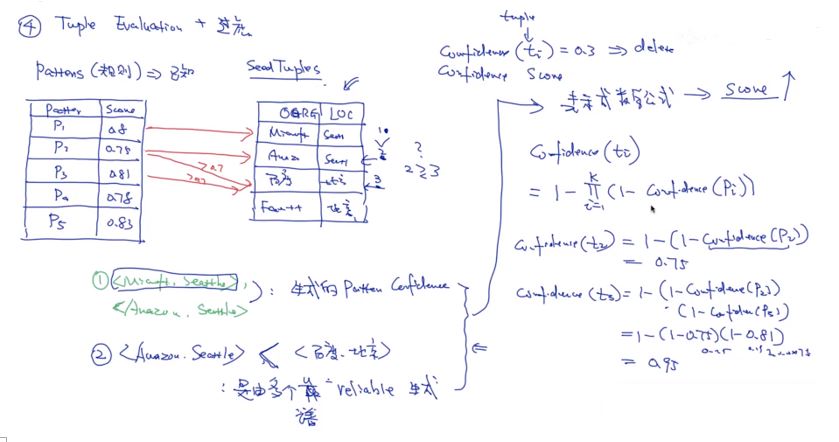 ④ Tuple Evaluation + 过滤
Pattens (规则) ⇒ 已知
Seed Tuples
Patter Score
P1 0.8
P2 0.75
P3 0.81
P4 0.78
P5 0.83
ORG LOC
Microft Seatt
Amaz Seatt
百度 北京
Face++ 北京
>0.7
1.
2
3
?
2 ≥ 3
① <Microft, Seattle>, ): 生成的 Patten Confidence
<Amazon, Seattle>
② <Amazon. Seattle> < <百度. 北京>
: 是由多个 靠谱 "reliable 生成
tuple
Confidence (ti) = 0.3 ⇒ delete
Confidence Score
表示成数学公式 → Score ↑
Confidence (ti)
= 1 - ∏ (1 - Confidence (Pi))
K
i=1
Confidence (t2) = 1-(1-Confidence (P2))
= 0.75
Confidence (t3) = 1-(1-Confidence (P2))
·(1-Confiden(P3))
= 1-(1-0.75)(1-0.81)
0.25
= 0.95